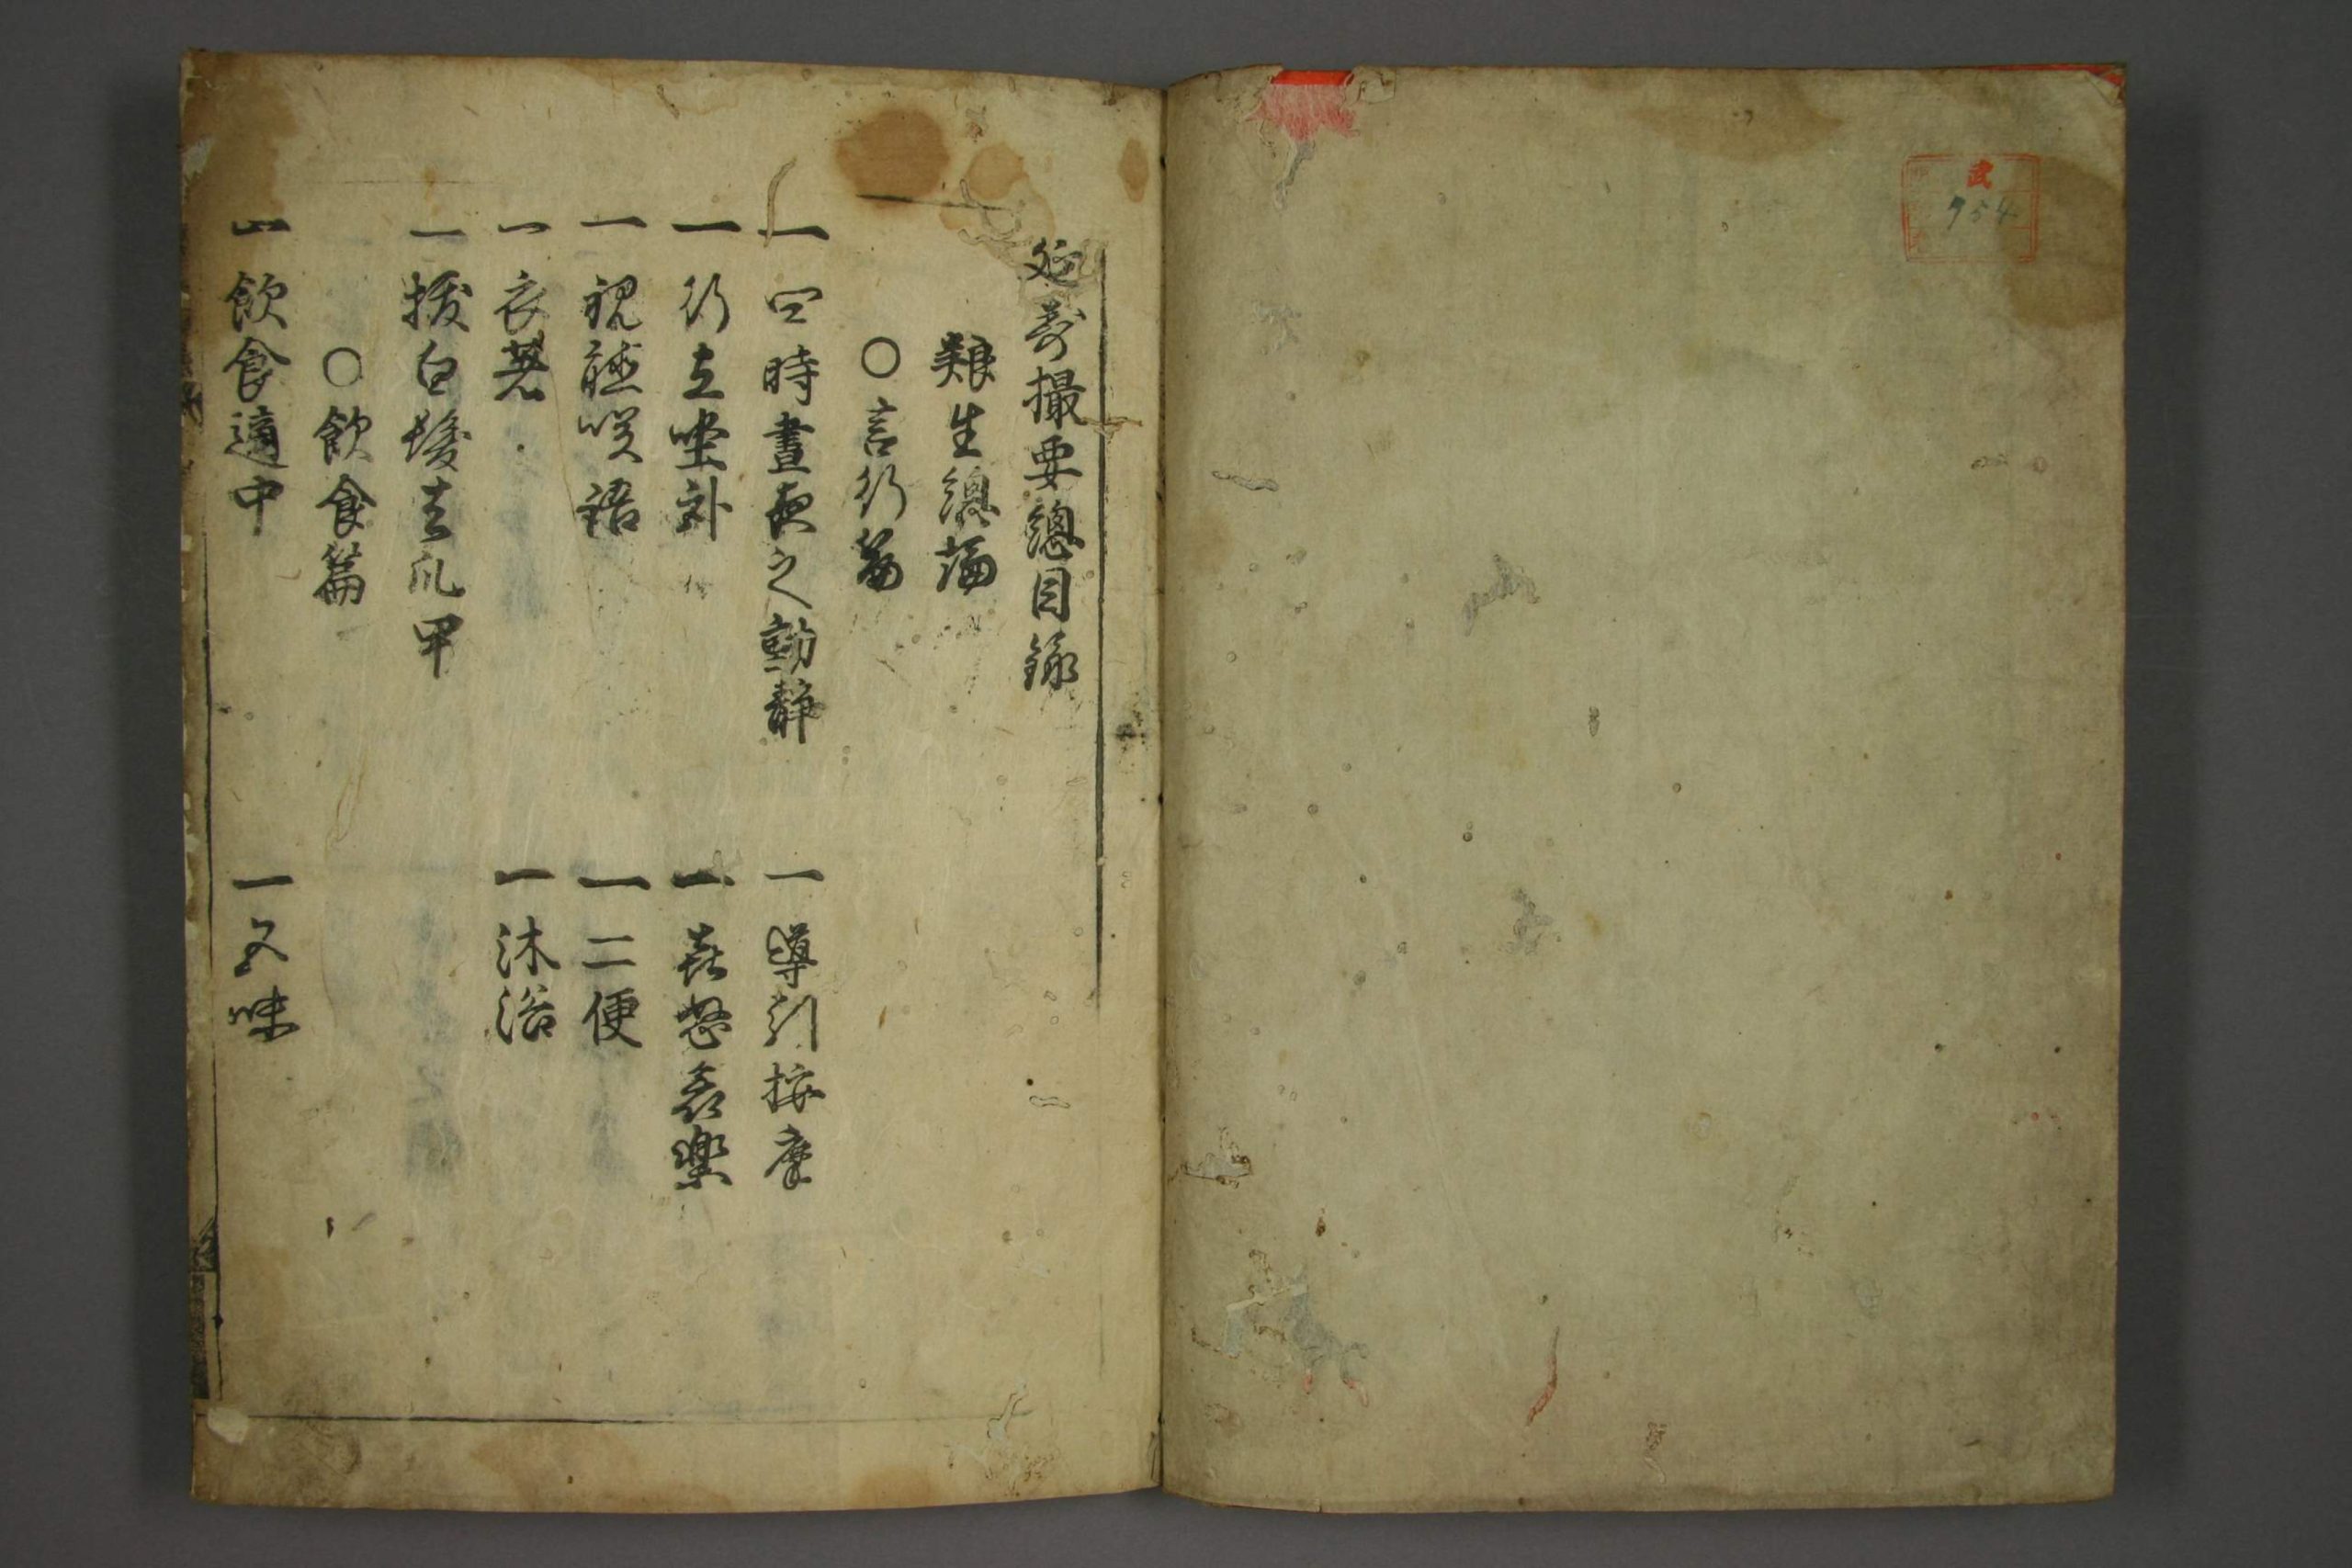 武
954
延壽撮要總目録
養生總論
○言行篇
一四時晝夜之動静　一導引按摩
一行立坐臥　一喜怒哀樂
一視聽笑語　一二便
一衣着　一沐浴
一拔白髮去爪甲
○飲食篇
一飲食適中　一五味